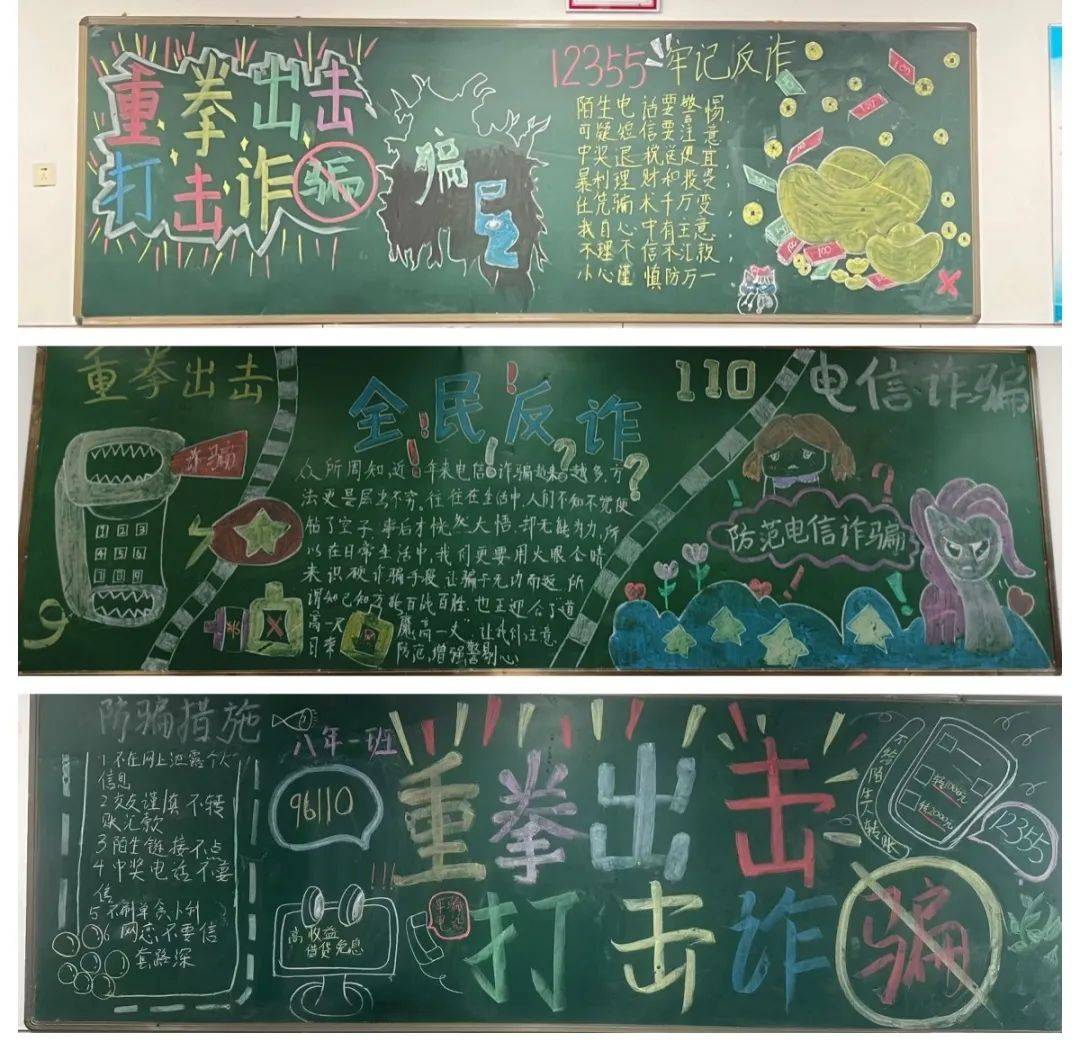 重拳出击
打击诈骗
骗局
12355 牢记反诈
陌生电话要警惕
可疑短信要注意
中奖退税送便宜
暴利理财和投资,
任凭骗术千万变,
我自心中有主意
不理不信不汇款
小心谨慎防万一
100
100
100
100
100
重拳出击
诈骗
1 2 3
4 5 6
7 8 9
全民反诈
!
!
?
众所周知近年来电信诈骗越来越多,方
法更是层出不穷。往往在生活中,人们不知不觉便
给了空子 事后才恍然大悟 却无能为力,所
以在日常生活中,我们更要用火眼金睛
来识破诈骗手段 让骗子无功而返 所
谓知己知彼百战百胜. 也正迎合了道
高一尺 魔高一丈" 让我们注意
日常 防范,增强警惕心
110
电信诈骗
防范电信诈骗
防骗措施
1 不在网上泄露个人
信息
2 交友谨慎 不转
账汇款
3 陌生链接不点
4 中奖电话不要
信
5 不刷单贪小利
6 网恋不要信
套路深
八年一班
96110
!!!
高收益
借贷免息
重拳出击
打击诈骗
不给陌生人转账
转1000元
转2000元
12355